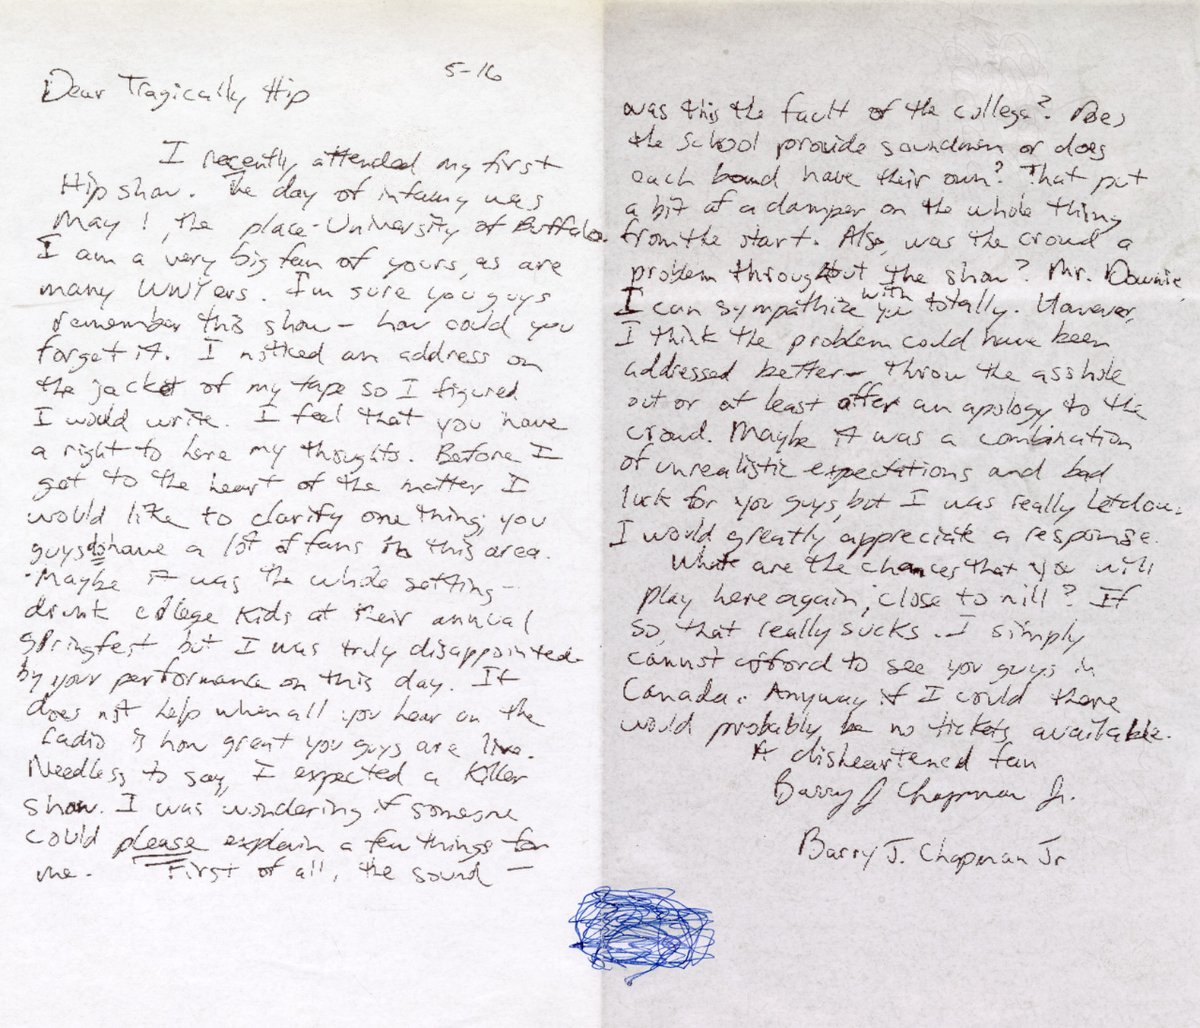 5-16
Dear Tragically Hip
I recently attended my first
Hip show. The day of infamy was
May 1, the place-University of Buffalo.
I am a very big fan of yours, as are
many WNYers. I'm sure you guys
remember this show - how could you
forget it. I noticed an address on
the jacket of my tape so I figured
I would write. I feel that you have
a right to here my thoughts. Before I
get to the heart of the matter I
would like to clarify one thing; you
guys do have a lot of fans in this area.
Maybe it was the whole setting -
drunk college kids at their annual
springfest but I was truly disappointed
by your performance on this day. It
does not help when all you hear on the
radio is how great you guys are live.
Needless to say, I expected a killer
show. I was wondering if someone
could please explain a few things for
me. First of all, the sound -
was this the fault of the college? Does
the school provide soundmen or does
each band have their own? That put
a bit of a damper on the whole thing
from the start. Also, was the crowd a
problem throughout the show? Mr. Downie,
I can sympathize with you totally. However,
I think the problem could have been
addressed better - throw the asshole
out or at least offer an apology to the
crowd. Maybe it was a combination
of unrealistic expectations and bad
luck for you guys, but I was really letdown.
I would greatly appreciate a response.
What are the chances that you will
play here again; close to nill? If
so, that really sucks. I simply
cannot afford to see you guys in
Canada. Anyway if I could there
would probably be no tickets available.
A disheartened fan
Barry J Chapman Jr.
Barry J. Chapman Jr